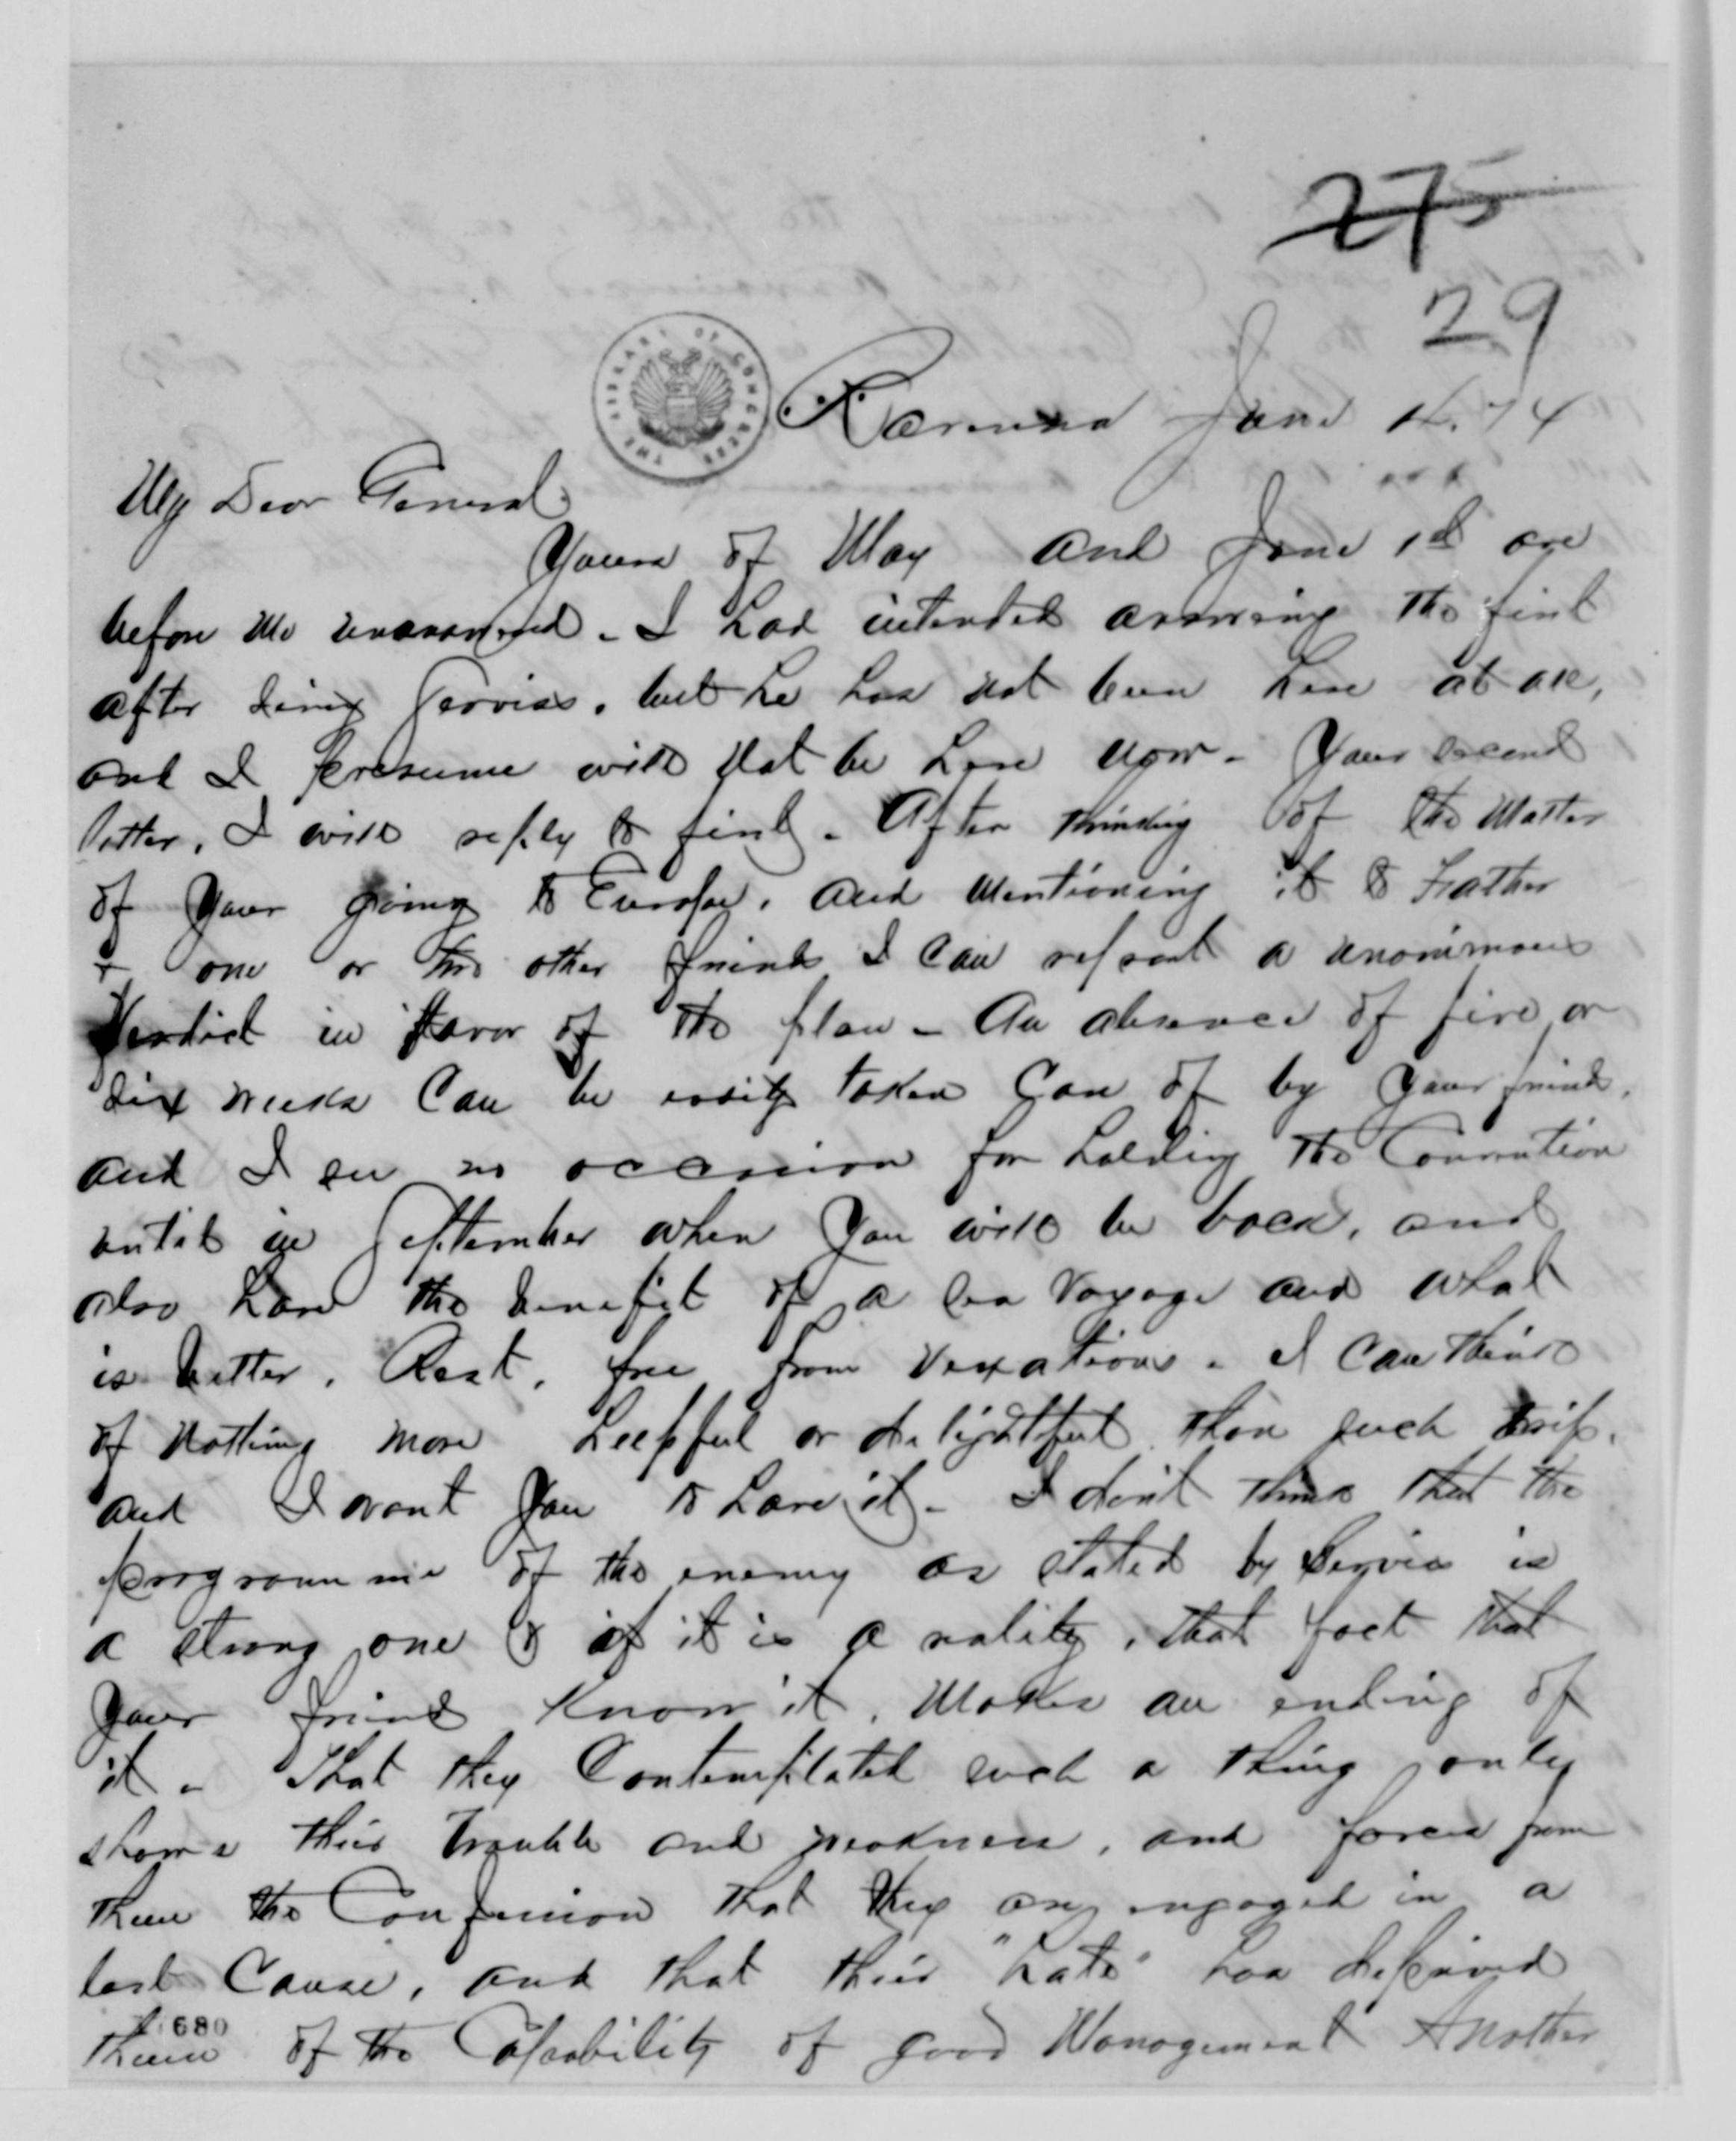 275
29
THE LIBRARY OF CONGRESS
Ravenna June 4. 74
My Dear General
Yours of May and June 1st are
before me unanswered. - I had intended answering the first
after seeing Serviss. but he has not been here at all,
and I presume will not be here now - Your second
letter, I will reply to first. After thinking of the Matter
of your going to Europe, and Mentioning it to Father
+ one or two other friends I can report a unanimous
Verdict in favor of the plan - An absence of five or
six weeks Can be easily taken Care of by your friends,
and I see no occasion for holding the Convention
until in September when you will be back, and
also have the benefit of a sea Voyage and what
is better, Rest, free from Vexations. I Can think
of Nothing more helpful or delightful than such trip.
and I want you to have it - I dont think that the
programme of the enemy as stated by Serviss is
a strong one & if it is a reality, that fact that
your friends Know it, Makes an ending of
it - That they Contemplated such a thing only
shows their trouble and weakness, and forces from
them the Confession that they are engaged in a
lost Cause, and that their "hate" has deprived
680
them of the Capability of good Management Another